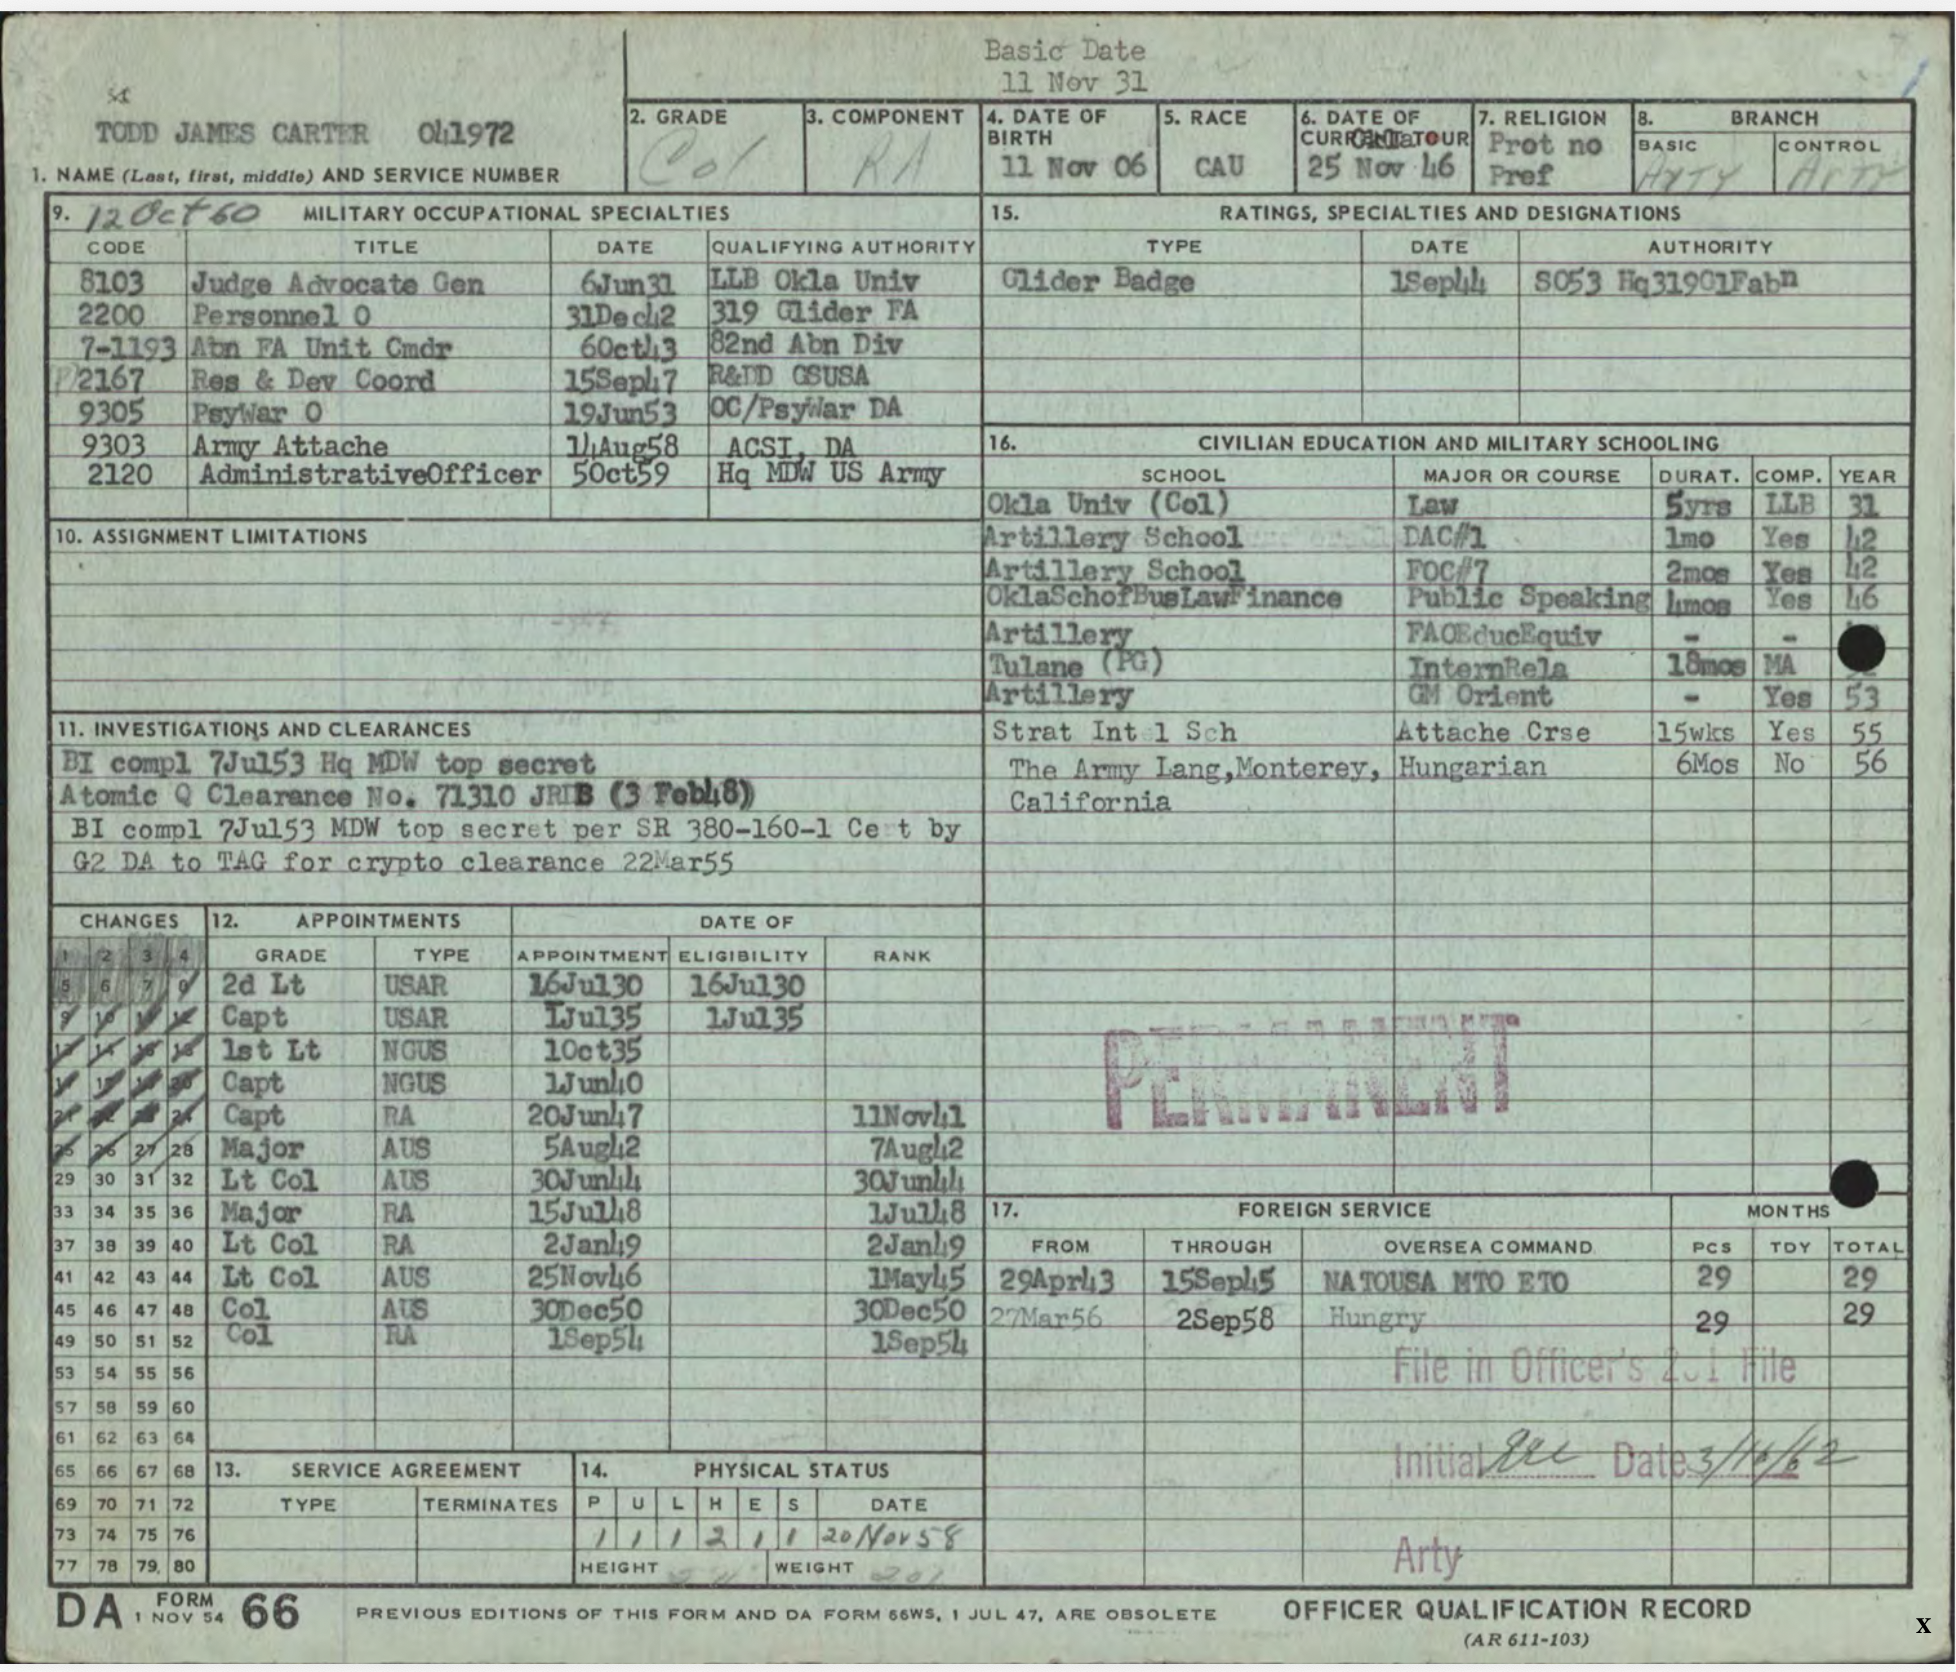 Basic Date
11 Nov 31
TODD JAMES CARTER O41972
1. NAME (Last, first, middle) AND SERVICE NUMBER
2. GRADE
Col
3. COMPONENT
RA
4. DATE OF BIRTH
11 Nov 06
5. RACE
CAU
6. DATE OF CURRENT TOUR
25 Nov 46
7. RELIGION
Prot no
Pref
8. BRANCH
BASIC CONTROL
Arty Arty
9. 12 Oct 60 MILITARY OCCUPATIONAL SPECIALTIES
CODE TITLE DATE QUALIFYING AUTHORITY
8103 Judge Advocate Gen 6Jun31 LLB Okla Univ
2200 Personnel O 31Dec42 319 Glider FA
7-1193 Abn FA Unit Cmdr 6Oct43 82nd Abn Div
2167 Res & Dev Coord 15Sep47 R&DD GSUSA
9305 PsyWar O 19Jun53 OC/PsyWar DA
9303 Army Attache 14Aug58 ACSI, DA
2120 AdministrativeOfficer 5Oct59 Hq MDW US Army
10. ASSIGNMENT LIMITATIONS
11. INVESTIGATIONS AND CLEARANCES
BI compl 7Jul53 Hq MDW top secret
Atomic Q Clearance No. 71310 JRDB (3 Feb48)
BI compl 7Jul53 MDW top secret per SR 380-160-1 Ce t by
G2 DA to TAG for crypto clearance 22Mar55
CHANGES
1 2 3 4
5 6 7 8
25 26 27 28
29 30 31 32
33 34 35 36
37 38 39 40
41 42 43 44
45 46 47 48
49 50 51 52
53 54 55 56
57 58 59 60
61 62 63 64
65 66 67 68
69 70 71 72
73 74 75 76
77 78 79 80
12. APPOINTMENTS DATE OF
GRADE TYPE APPOINTMENT ELIGIBILITY RANK
2d Lt USAR 16Jul30 16Jul30
Capt USAR 1Jul35 1Jul35
1st Lt NGUS 1Oct35
Capt NGUS 1Jun40
Capt RA 20Jun47 11Nov41
Major AUS 5Aug42 7Aug42
Lt Col AUS 30Jun44 30Jun44
Major RA 15Jul48 1Jul48
Lt Col RA 2Jan49 2Jan49
Lt Col AUS 25Nov46 1May45
Col AUS 30Dec50 30Dec50
Col RA 1Sep54 1Sep54
13. SERVICE AGREEMENT
TYPE TERMINATES
14. PHYSICAL STATUS
P U L H E S DATE
1 1 1 2 1 1 20 Nov 58
HEIGHT WEIGHT 201
15. RATINGS, SPECIALTIES AND DESIGNATIONS
TYPE DATE AUTHORITY
Glider Badge 1Sep44 SO53 Hq319GlFabn
16. CIVILIAN EDUCATION AND MILITARY SCHOOLING
SCHOOL MAJOR OR COURSE DURAT. COMP. YEAR
Okla Univ (Col) Law 5yrs LLB 31
Artillery School DAC#1 1mo Yes 42
Artillery School FOC#7 2mos Yes 42
OklaSchofBusLawFinance Public Speaking 4mos Yes 46
Artillery FAOEducEquiv - -
Tulane (PG) InternRela 18mos MA
Artillery GM Orient - Yes 53
Strat Int l Sch Attache Crse 15wks Yes 55
The Army Lang,Monterey, Hungarian 6Mos No 56
California
PERMANENT
17. FOREIGN SERVICE MONTHS
FROM THROUGH OVERSEA COMMAND PCS TDY TOTAL
29Apr43 15Sep45 NATOUSA MTO ETO 29 29
27Mar56 2Sep58 Hungry 29 29
File in Officer's 201 File
Initial Date 3/16/62
Arty
DA FORM 66
1 NOV 54
PREVIOUS EDITIONS OF THIS FORM AND DA FORM 66WS, 1 JUL 47, ARE OBSOLETE
OFFICER QUALIFICATION RECORD
(AR 611-103)
X